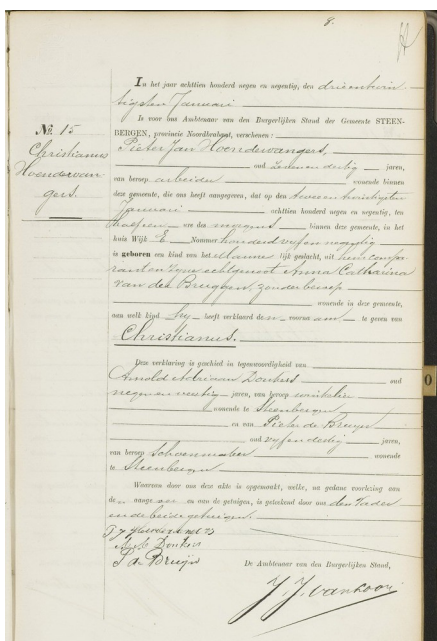 8.
In het jaar achttien honderd negen en negentig, den drieentwin
tigsten Januari
is voor ons Ambtenaar van den Burgerlijken Stand der Gemeente STEEN-
BERGEN, provincie Noordbrabant, verschenen:
No. 15
Christianus
Hoendervan
gers.
Pieter Jan Hoendervangers,
oud zevenendertig jaren,
van beroep arbeider wonende binnen
deze gemeente, die ons heeft aangegeven, dat op den tweeentwintigsten
Januari achttien honderd negen en negentig, ten
ure des morgens binnen deze gemeente, in het
huis Wijk E Nommer honderd vijfennegentig
is geboren een kind van het Mannelijk geslacht, uit hem compa
rant en zijne echtgenoot Anna Catharina
van der Bruggen, zonder beroep
wonende in deze gemeente,
aan welk kind hij heeft verklaard den voornaam te geven van
Christianus.
Deze verklaring is geschied in tegenwoordigheid van
Arnold Adriaan Donkers oud
negen en veertig jaren, van beroep winkelier
wonende te Steenbergen
en van Pieter de Bruijn
oud vijfendertig jaren,
van beroep Schoenmaker wonende
te Steenbergen
Waarvan door ons deze akte is opgemaakt, welke, na gedane voorlezing aan
de aangever en aan de getuigen, is geteekend door ons den Vader
en de beide getuigen.
A. A. Donkers
P de Bruijn
De Ambtenaar van den Burgerlijken Stand,
J. J. van Loon